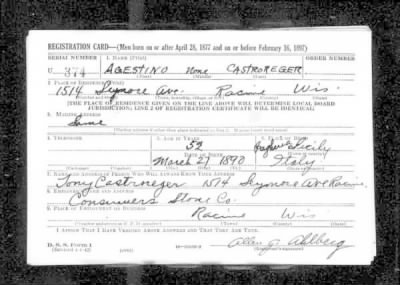 REGISTRATION CARD—(Men born on or after April 28, 1877 and on or before February 16, 1897)
SERIAL NUMBER 1. NAME (Print) ORDER NUMBER
U 374 AGESTINO None CASTROREGER
(First) (Middle) (Last)
2. PLACE OF RESIDENCE (Print)
1514 Seymore Ave. Racine Wis.
[THE PLACE OF RESIDENCE GIVEN ON THE LINE ABOVE WILL DETERMINE LOCAL BOARD
JURISDICTION; LINE 2 OF REGISTRATION CERTIFICATE WILL BE IDENTICAL]
3. MAILING ADDRESS
Same
4. TELEPHONE 5. AGE IN YEARS 6. PLACE OF BIRTH
52 Sicily
DATE OF BIRTH
March 27 1890 Italy
7. NAME AND ADDRESS OF PERSON WHO WILL ALWAYS KNOW YOUR ADDRESS
Tony Castroneger 1514 Seymore Ave Racine,
8. EMPLOYER'S NAME AND ADDRESS
Consumers Stone Co.
9. PLACE OF EMPLOYMENT OR BUSINESS
Racine Wis
I AFFIRM THAT I HAVE VERIFIED ABOVE ANSWERS AND THAT THEY ARE TRUE.
D. S. S. Form 1
(Revised 4-1-42) (over)
Allen G. Ahlberg